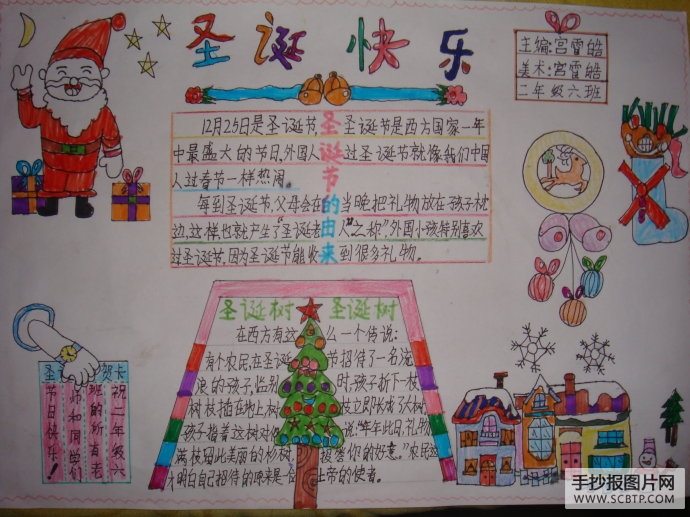 圣诞快乐
主编:宫雪皓
美术:宫雪皓
二年级六班
圣诞节的由来
12月25日是圣诞节,圣诞节是西方国家一年
中最盛大的节日,外国人过圣诞节就像我们中国
人过春节一样热闹。
每到圣诞节,父母会在当晚把礼物放在孩子枕
边,这样,也就产生了“圣诞老人”之称”外国小孩特别喜欢
过圣诞节,因为圣诞节能收到很多礼物。
圣诞树 圣诞树
在西方有这么一个传说:
有个农民在圣诞节招待了一名流
浪的孩子,临别时,孩子折下一枝
树枝插在地上,树枝立即长成了大树,
孩子指着这树对他说:“年年此日,礼物
满枝,因此美丽的杉树报答你的好意。”农民这
才明白自己招待的原来是位上帝的使者。
圣 贺卡
祝二年级六
班的所有老
师和同学们
节日快乐!
手抄报图片网
WWW.SCBTP.COM